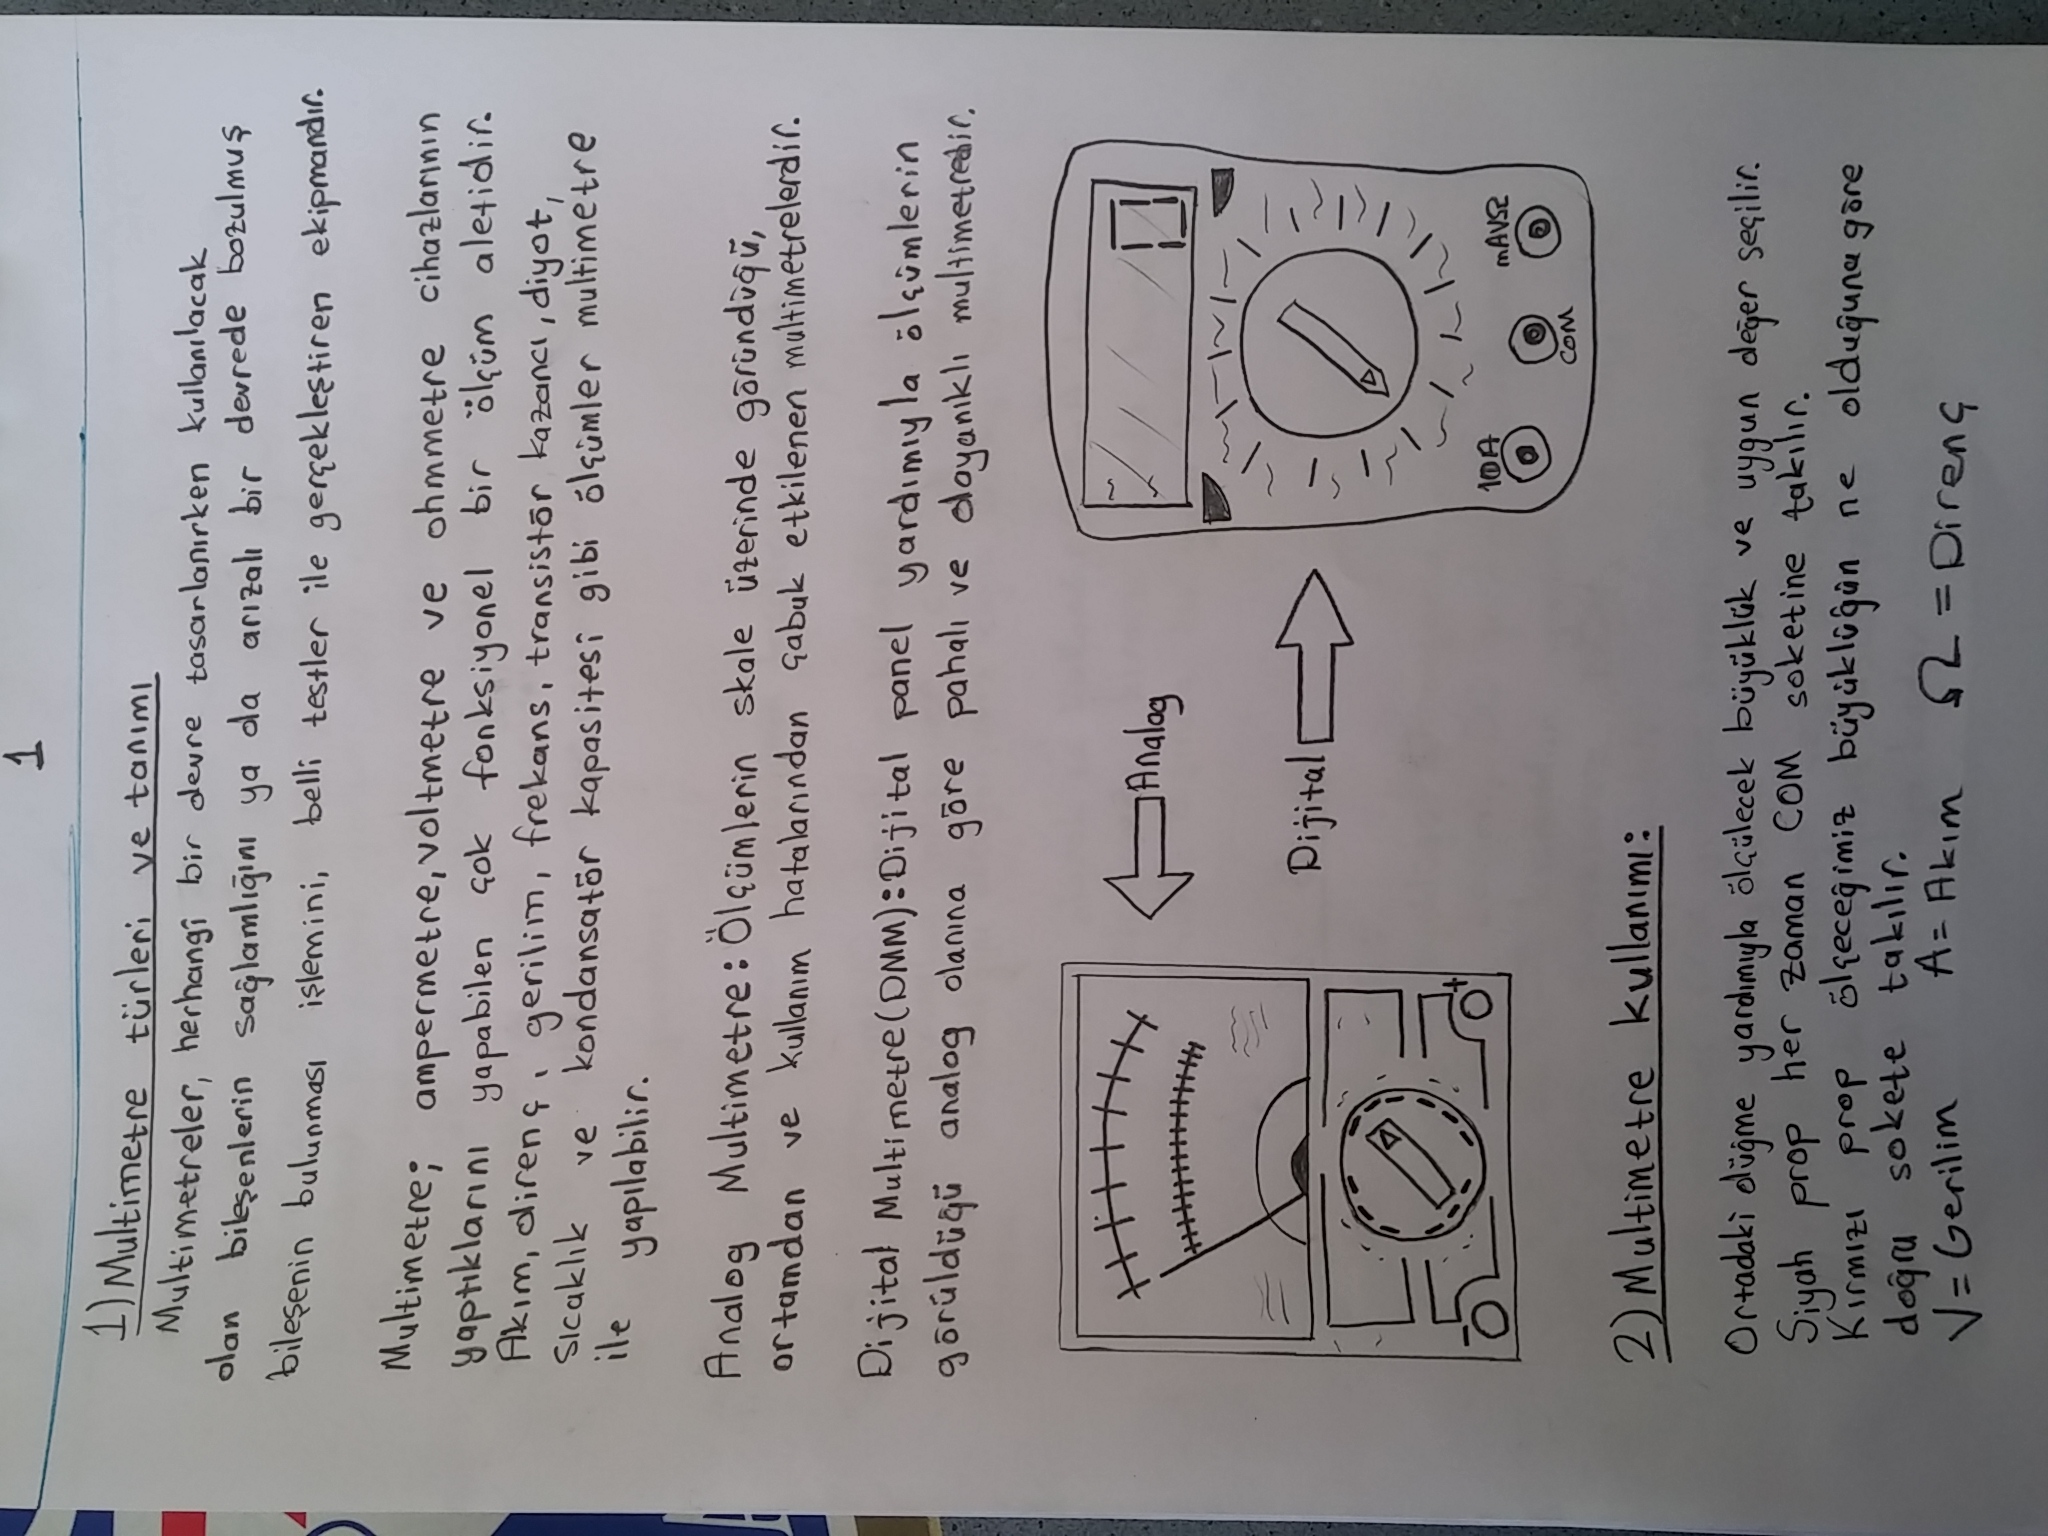 1
1) Multimetre türleri ve tanımı
Multimetreler, herhangi bir devre tasarlanırken kullanılacak
olan bileşenlerin sağlamlığını ya da arızalı bir devrede bozulmuş
bileşenin bulunması işlemini, belli testler ile gerçekleştiren ekipmandır.
Multimetre; ampermetre, voltmetre ve ohmmetre cihazlarının
yaptıklarını yapabilen çok fonksiyonel bir ölçüm aletidir.
Akım, direnç, gerilim, frekans, transistör kazancı, diyot,
sıcaklık ve kondansatör kapasitesi gibi ölçümler multimetre
ile yapılabilir.
Analog Multimetre: Ölçümlerin skale üzerinde göründüğü,
ortamdan ve kullanım hatalarından çabuk etkilenen multimetrelerdir.
Dijital Multimetre (DMM): Dijital panel yardımıyla ölçümlerin
görüldüğü analog olanına göre pahalı ve dayanıklı multimetredir.
Analog
0
Dijital
- +
10A
COM
mAVΩ
2) Multimetre kullanımı:
Ortadaki düğme yardımıyla ölçülecek büyüklük ve uygun değer seçilir.
Siyah prop her zaman COM soketine takılır.
Kırmızı prop ölçeceğimiz büyüklüğün ne olduğuna göre
doğru sokete takılır.
V= Gerilim A= Akım Ω = Direnç